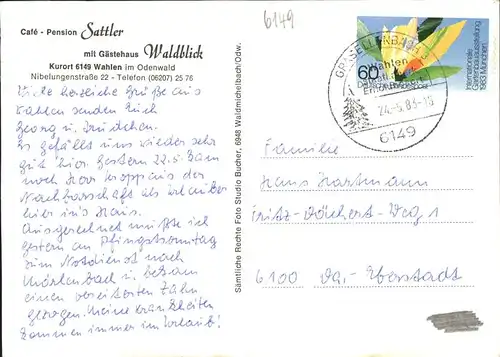 Café - Pension Sattler
mit Gästehaus Waldblick
Kurort 6149 Wahlen im Odenwald
Nibelungenstraße 22 - Telefon (06207) 25 76
Viele herzliche Grüße aus
Wahlen senden Euch
Georg u. Trudchen.
Es gefällt uns wieder sehr
gut hier. Gestern 22.5. kam
noch Herr Kropp aus der
Nachbarschaft als Urlauber
hier ins Haus.
Ausgerechnet mußte ich
gestern an Pfingstsonntag
zum Notdienst nach
Mörlenbach u. bekam
einen vereiterten Zahn
gezogen. Meine Krankheiten
kommen immer im Urlaub!
Sämtliche Rechte Foto Studio Bucher, 6948 Waldmichelbach/Odw.
6149
GRASELLENBACH
Wahlen
24.-5.83-15
6149
60
Deutsche Bundespost
Internationale
Gartenbauausstellung
1983 München
Familie
Hans Hartmann
Fritz-Döchert-Weg 1
6100 Da.-Eberstadt